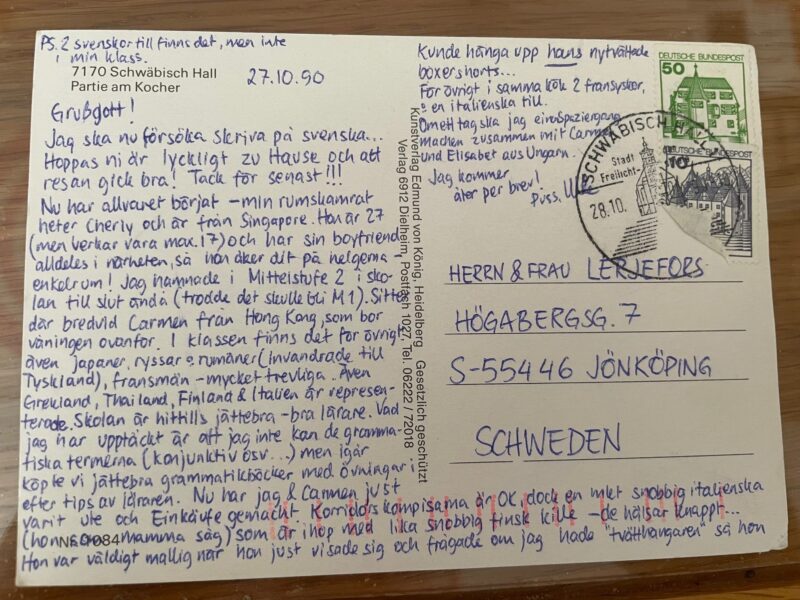 PS. 2 svenskor till finns det, men inte
i min klass.
7170 Schwäbisch Hall
Partie am Kocher
27.10.90
Grüßgott!
Jag ska nu försöka skriva på svenska...
Hoppas ni är lyckligt zu Hause och att
resan gick bra! Tack för senast!!!
Nu har allvaret börjat - min rumskamrat
heter Cherly och är från Singapore. Hon är 27
(men verkar vara max. 17) och har sin boyfriend
alldeles i närheten, så hon åker dit på helgerna -
enkelrum! Jag hamnade i Mittelstufe 2 i sko-
lan till slut ändå (trodde det skulle bli M1). Sitter
där bredvid Carmen från Hong Kong, som bor
våningen ovanför. I klassen finns det för övrigt
även japaner, ryssar o. rumäner (invandrade till
Tyskland), fransmän - mycket trevliga. Även
Grekland, Thailand, Finland & Italien är represen-
terade. Skolan är hittills jättebra - bra lärare. Vad
jag har upptäckt är att jag inte kan de gramma-
tiska termerna (konjunktiv osv...) men igår
köpte vi jättebra grammatikböcker med övningar i
efter tips av läraren. Nu har jag & Carmen just
varit ute och Einkäufe gemacht. Korridorskompisarna är OK, dock en mkt snobbig italienska
(hon som mamma såg) som är ihop med lika snobbig finsk kille - de hälsar knappt...
Hon var väldigt mallig när hon just visade sig och frågade om jag hade "tvätthängaren" så hon
Kunde hänga upp hans nytvättade
boxershorts...
För övrigt i samma kök 2 fransyskor,
o en italienska till.
Om ett tag ska jag einen Spaziergang
machen zusammen mit Carmen
und Elisabet aus Ungarn.
Jag kommer
åter per brev!
Puss.
DEUTSCHE BUNDESPOST
50
DEUTSCHE BUNDESPOST
10
SCHWÄBISCH HALL
Stadt
Freilicht-
28.10.
Kunstverlag Edmund von König, Heidelberg Gesetzlich geschützt
Verlag 6912 Dielheim, Postfach 1027, Tel. 06222 / 72018
HERRN & FRAU LERJEFORS
HÖGABERGSG. 7
S-55446 JÖNKÖPING
SCHWEDEN